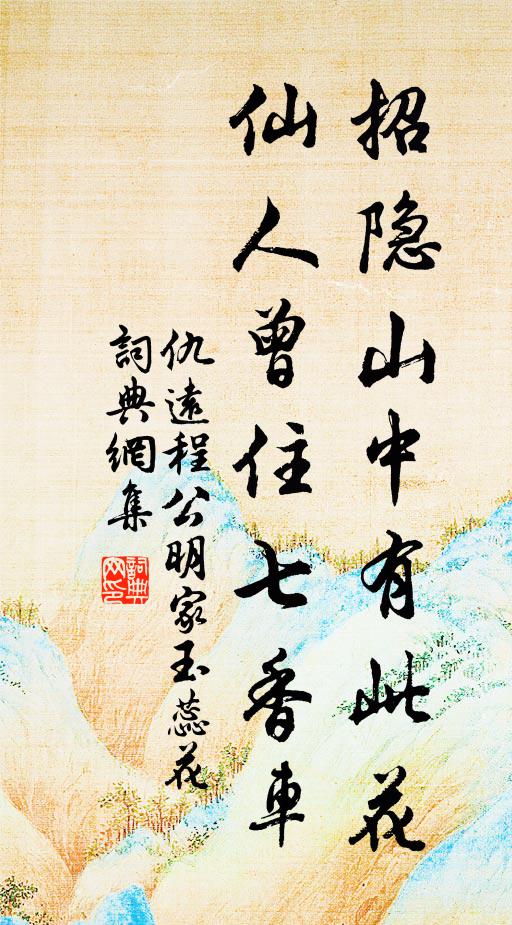 招隐山中有此花
仙人曾住七香車
仇遠程公明家玉蕊花
詞典網集
詞典
网印